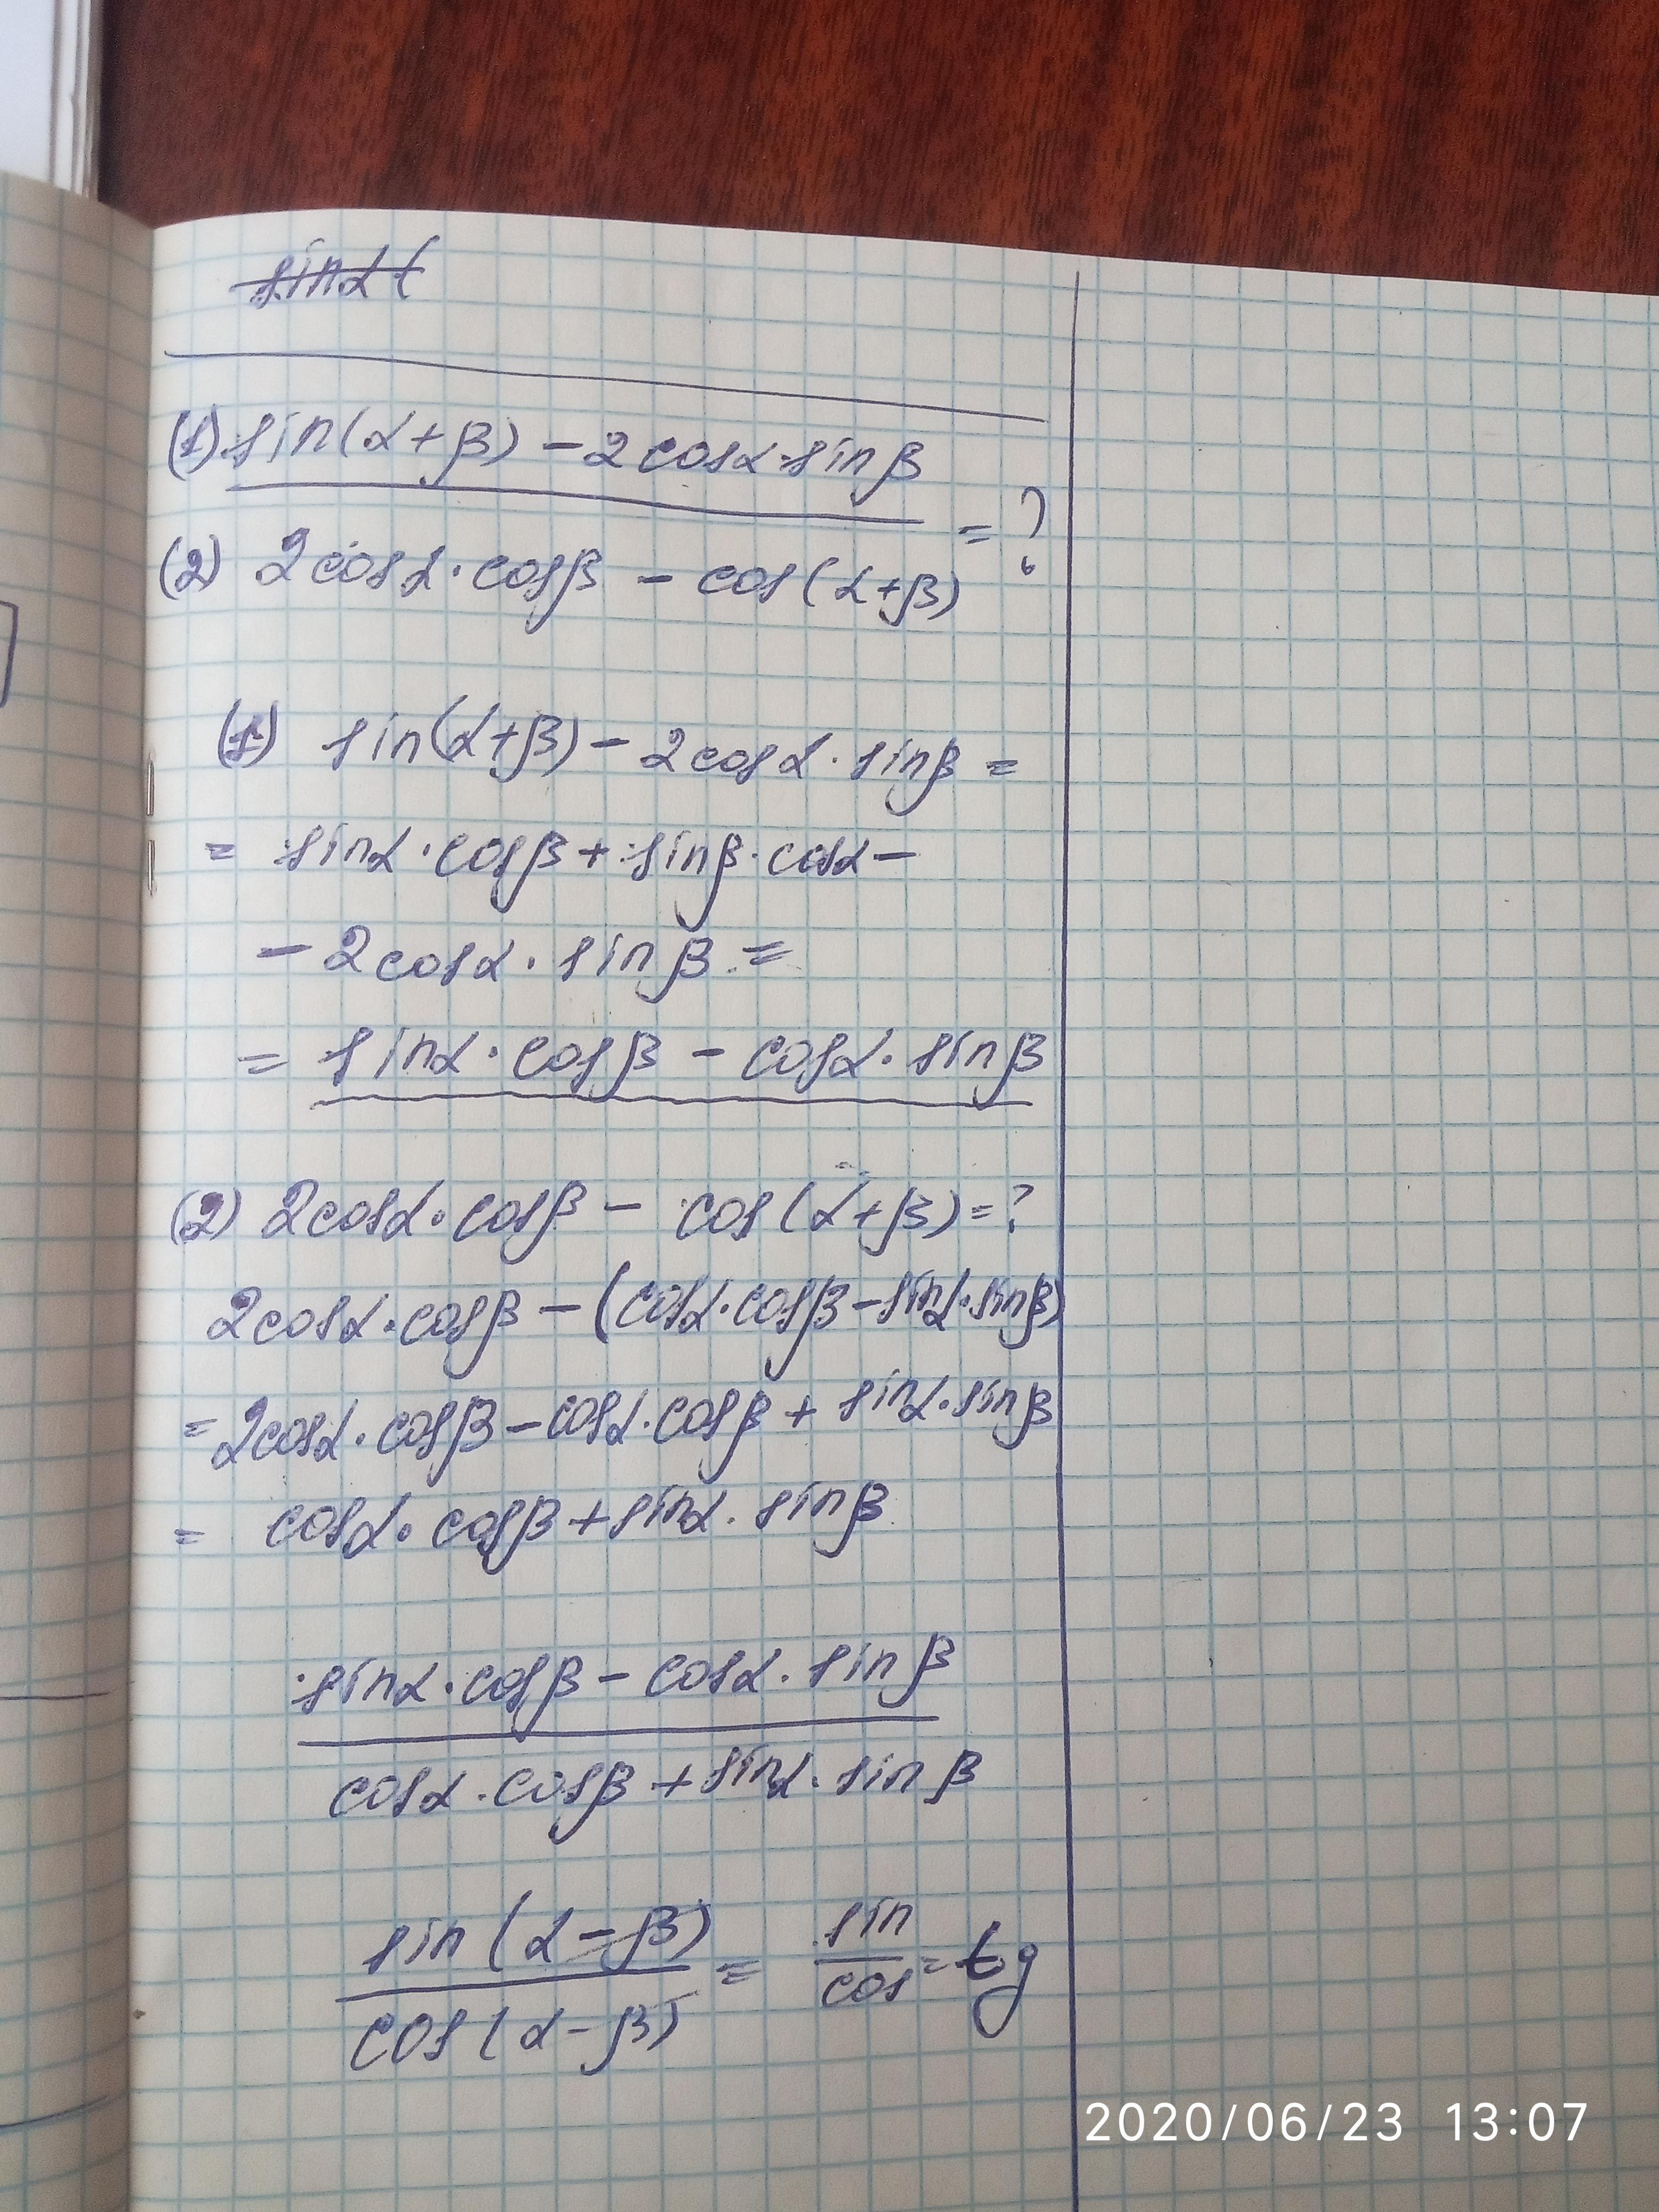 sinα(
(1) sin(α+β) - 2cosα·sinβ
= ?
(2) 2cosα·cosβ - cos(α+β)
(1) sin(α+β) - 2cosα·sinβ =
= sinα·cosβ + sinβ·cosα -
- 2cosα·sinβ =
= sinα·cosβ - cosα·sinβ
(2) 2cosα·cosβ - cos(α+β) = ?
2cosα·cosβ - (cosα·cosβ - sinα·sinβ)
= 2cosα·cosβ - cosα·cosβ + sinα·sinβ
= cosα·cosβ + sinα·sinβ
sinα·cosβ - cosα·sinβ
cosα·cosβ + sinα·sinβ
sin(α-β)
cos(α-β)
= sin
cos
= tg
2020/06/23 13:07